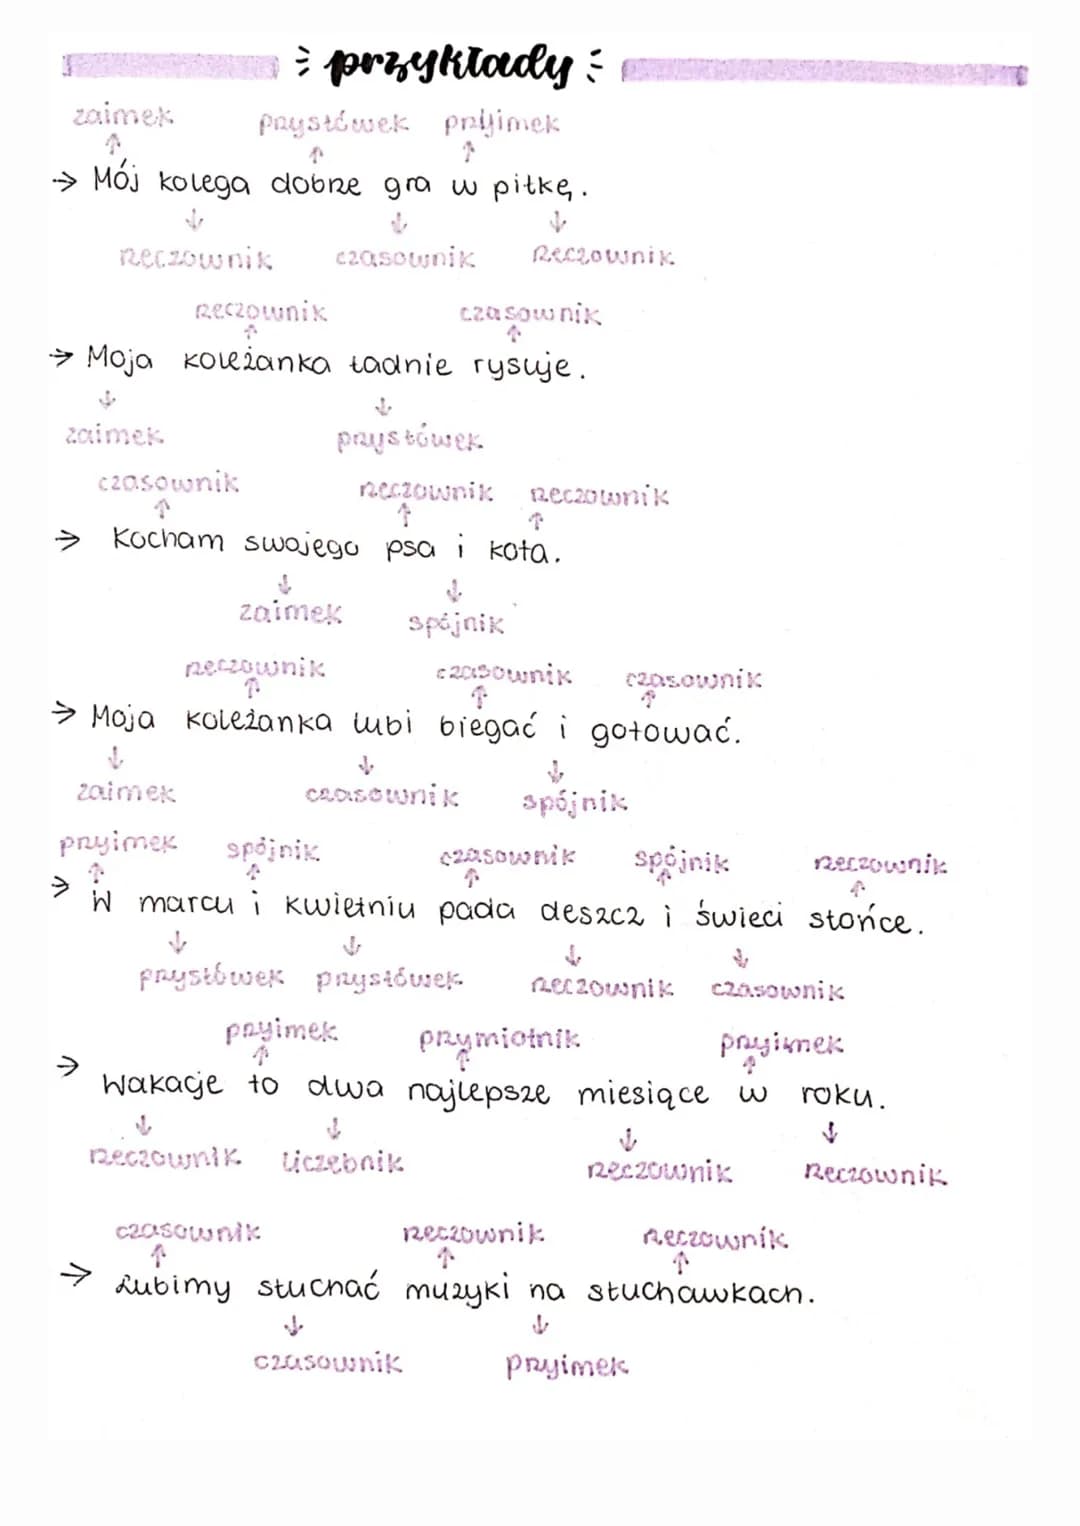 przykłady
zaimek przysłówek przyimek
→ Mój kolega dobrze gra w piłkę.
rzeczownik czasownik rzeczownik
rzeczownik czasownik
→ Moja koleżanka ładnie rysuje.
zaimek przysłówek
czasownik rzeczownik rzeczownik
→ Kocham swojego psa i kota.
zaimek spójnik
rzeczownik czasownik czasownik
→ Moja koleżanka lubi biegać i gotować.
zaimek czasownik spójnik
przyimek spójnik czasownik spójnik rzeczownik
→ W marcu i kwietniu pada deszcz i świeci słońce.
przysłówek przysłówek rzeczownik czasownik
przyimek przymiotnik przyimek
→ Wakacje to dwa najlepsze miesiące w roku.
rzeczownik liczebnik rzeczownik rzeczownik
czasownik rzeczownik rzeczownik
→ Lubimy słuchać muzyki na słuchawkach.
czasownik przyimek